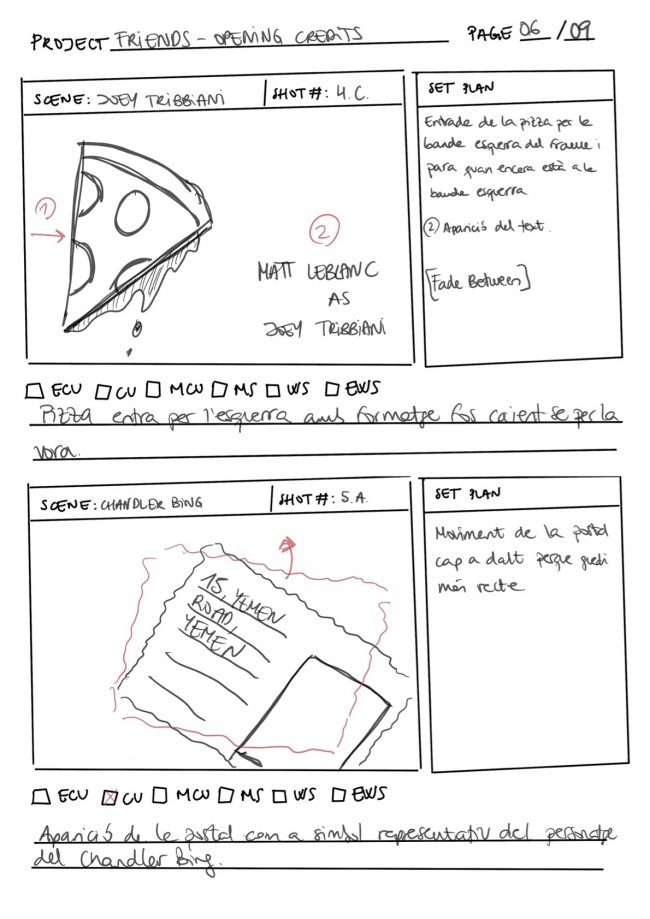 PROJECT FRIENDS - OPENING CREDITS
PAGE 06 /09
SCENE: JOEY TRIBBIANI
SHOT#: 4.C.
SET PLAN
Entrade de la pizza per le
bande esquerra del frame i
para quan encera està a le
bande esquerra
② Aparició del text.
[Fade Between]
①
②
MATT LEBLANC
AS
JOEY TRIBBIANI
ECU CU MCU MS WS EWS
Pizza entra per l'esquerra amb formatge fos caient-se per la
vora.
SCENE: CHANDLER BING
SHOT#: 5.A.
SET PLAN
Moviment de la postal
cap a dalt perque quedi
més recte
15 YEMEN
ROAD,
YEMEN
ECU CU MCU MS WS EWS
Aparició de le postal com a simbol representatiu del personatge
del Chandler Bing.